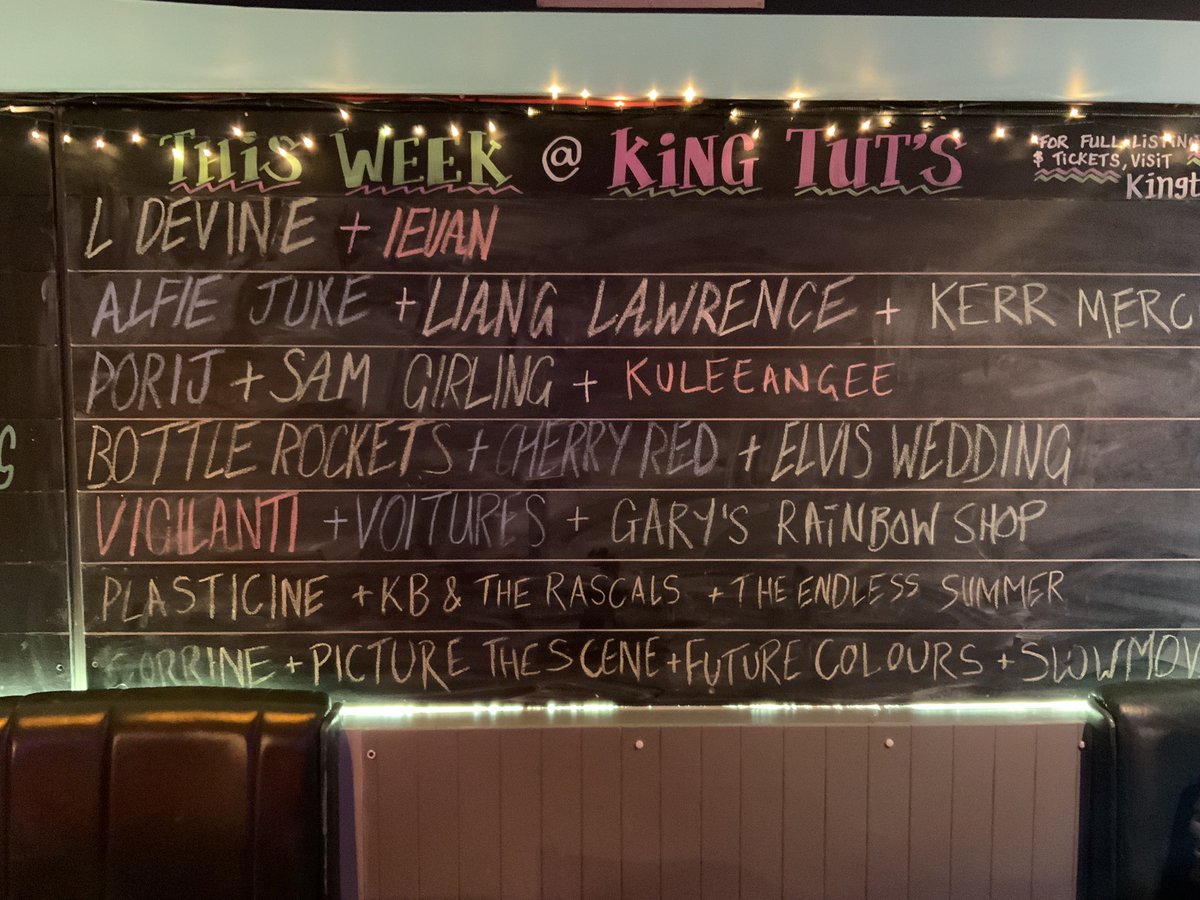 THIS WEEK @ KING TUT'S
FOR FULL LISTING
& TICKETS, VISIT
Kingt
L DEVINE + IEUAN
ALFIE JUKE + LIANG LAWRENCE + KERR MERC
PORIJ + SAM GIRLING + KULEEANGEE
BOTTLE ROCKETS + CHERRY RED + ELVIS WEDDING
VIGILANTI + VOITURES + GARY'S RAINBOW SHOP
PLASTICINE + KB & THE RASCALS + THE ENDLESS SUMMER
CORRINE + PICTURE THE SCENE + FUTURE COLOURS + SLOWMOV
S